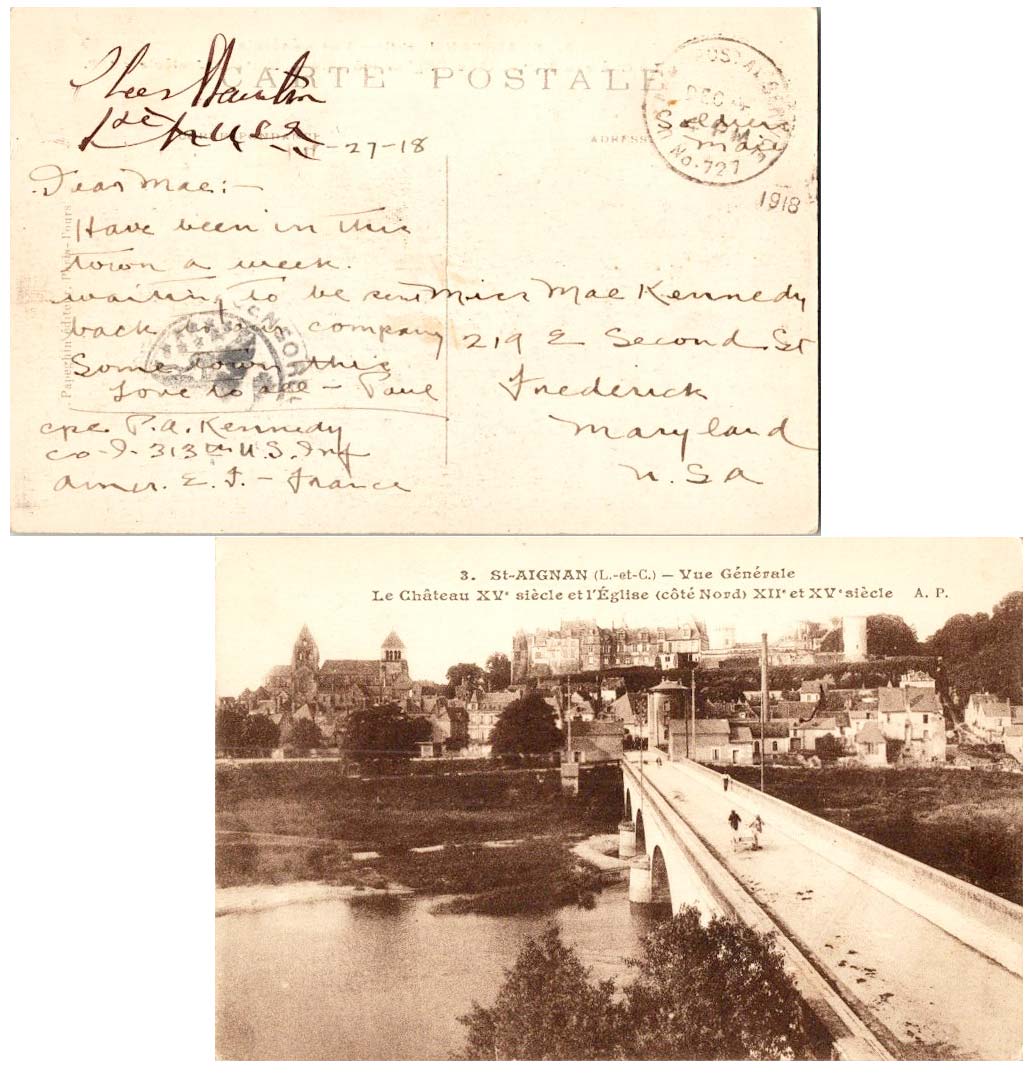 CARTE POSTALE
1st Lt
CORRESPONDANCE
ADRESSE
-27-18
POSTAL
DEC 4
PM
No. 727
1918
Soldiers
Mail
Dear Mae:-
Have been in this
town a week.
waiting to be sent
back to our company
Some town this
Love to all - Paul
CENSORED
Cpl. P. A. Kennedy
Co-I-313th U.S. Inf
Amer. E. F. - France
Miss Mae Kennedy
219 E Second St
Frederick
Maryland
U.S.A
Papeghin éditeur, Paris-Tours
3. St-AIGNAN (L.-et-C.) — Vue Générale
Le Château XVe siècle et l'Église (côté Nord) XIIe et XVe siècle A. P.